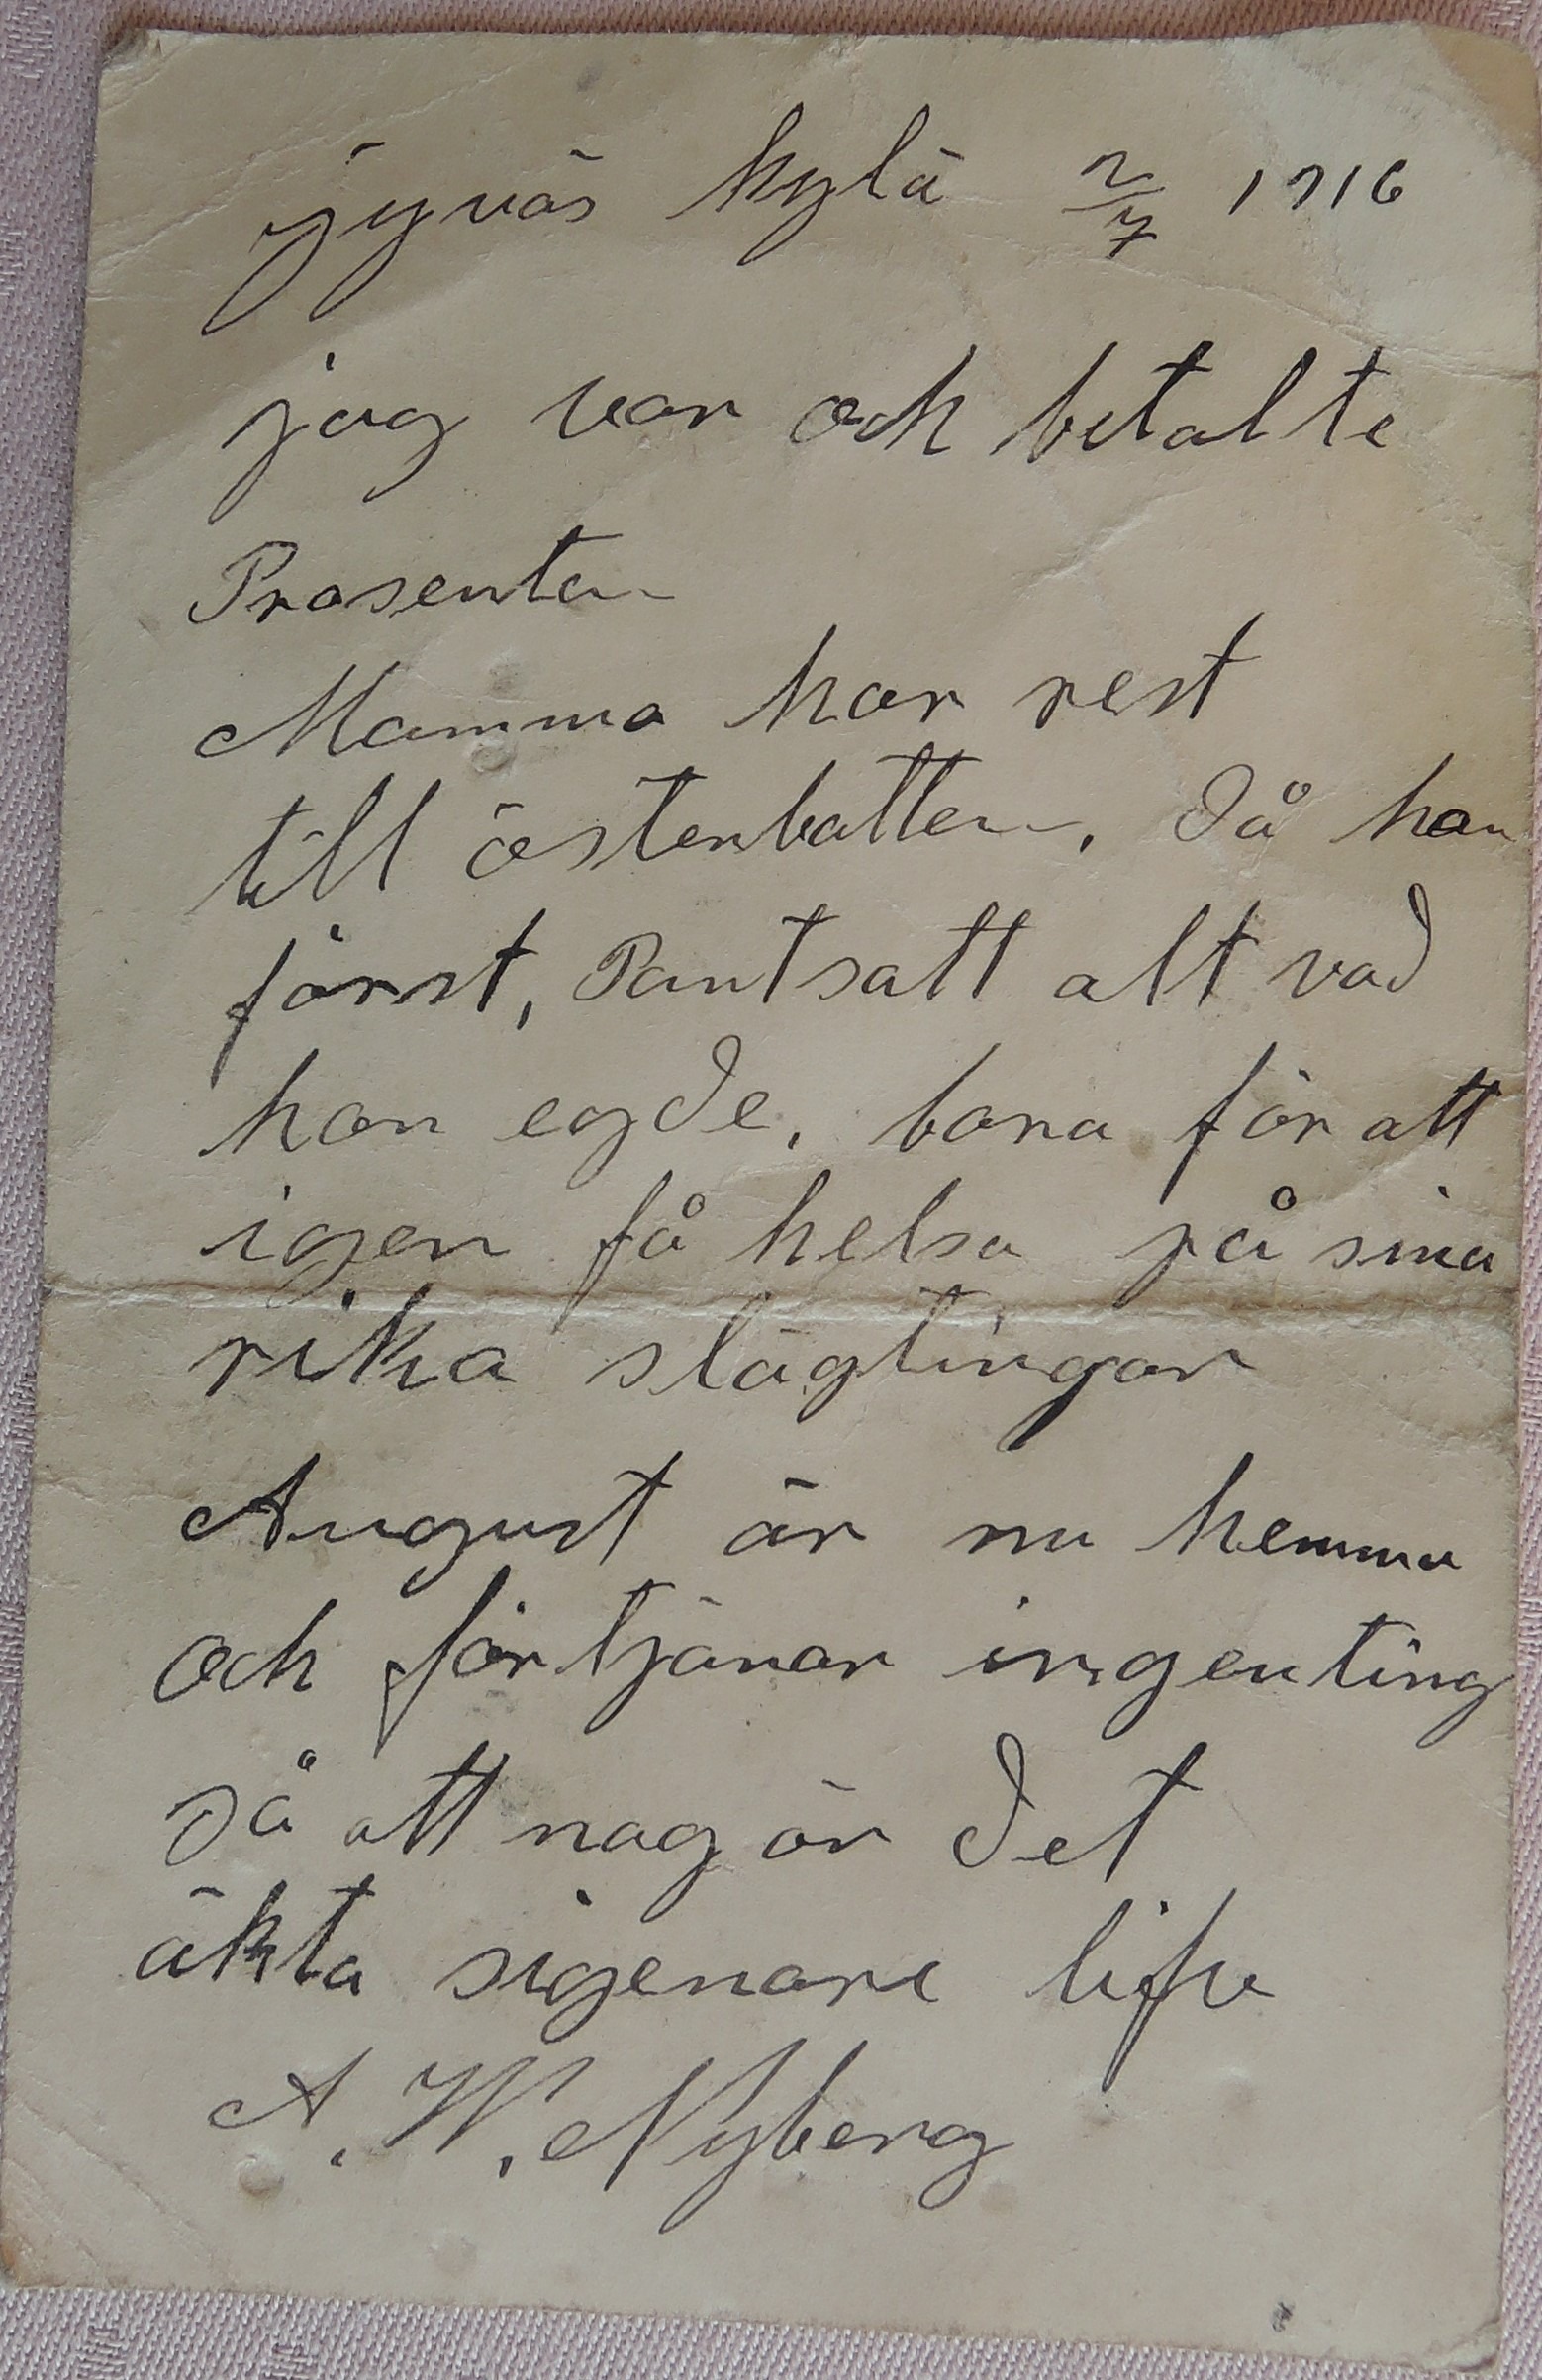 jyväs kylä 2/7 1916
jag var och betalte
Prosenten
Mamma har rest
till österbatten. då hon
först, Pantsatt alt vad
hon egde, bara för att
igen få helsa på sina
rika slägtingar
August är nu hemma
och förtjänar ingenting
så att nog är det
äkta sigenare lifve
A. W. Nyberg